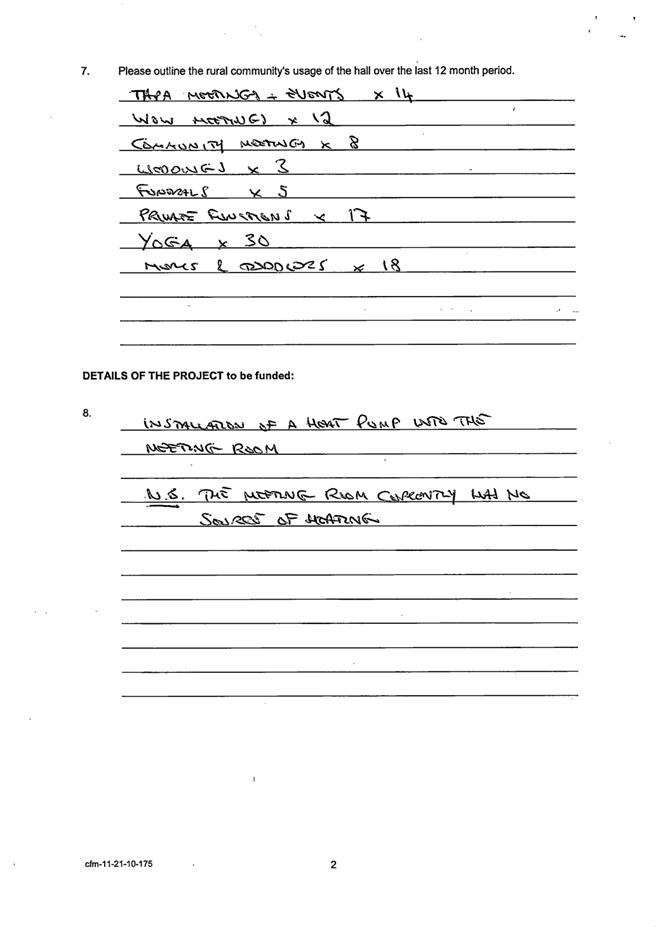 7. Please outline the rural community's usage of the hall over the last 12 month period.
THPA MEETINGS + EVENTS x 14
WOW MEETINGS x 12
COMMUNITY MEETINGS x 8
WEDDINGS x 3
FUNERALS x 5
PRIVATE FUNCTIONS x 17
YOGA x 30
x 18
DETAILS OF THE PROJECT to be funded:
8.
INSTALLATION OF A HEAT PUMP INTO THE
MEETING ROOM
N.B. THE MEETING ROOM CURRENTLY HAS NO
SOURCE OF HEATING
cfm-11-21-10-175
2